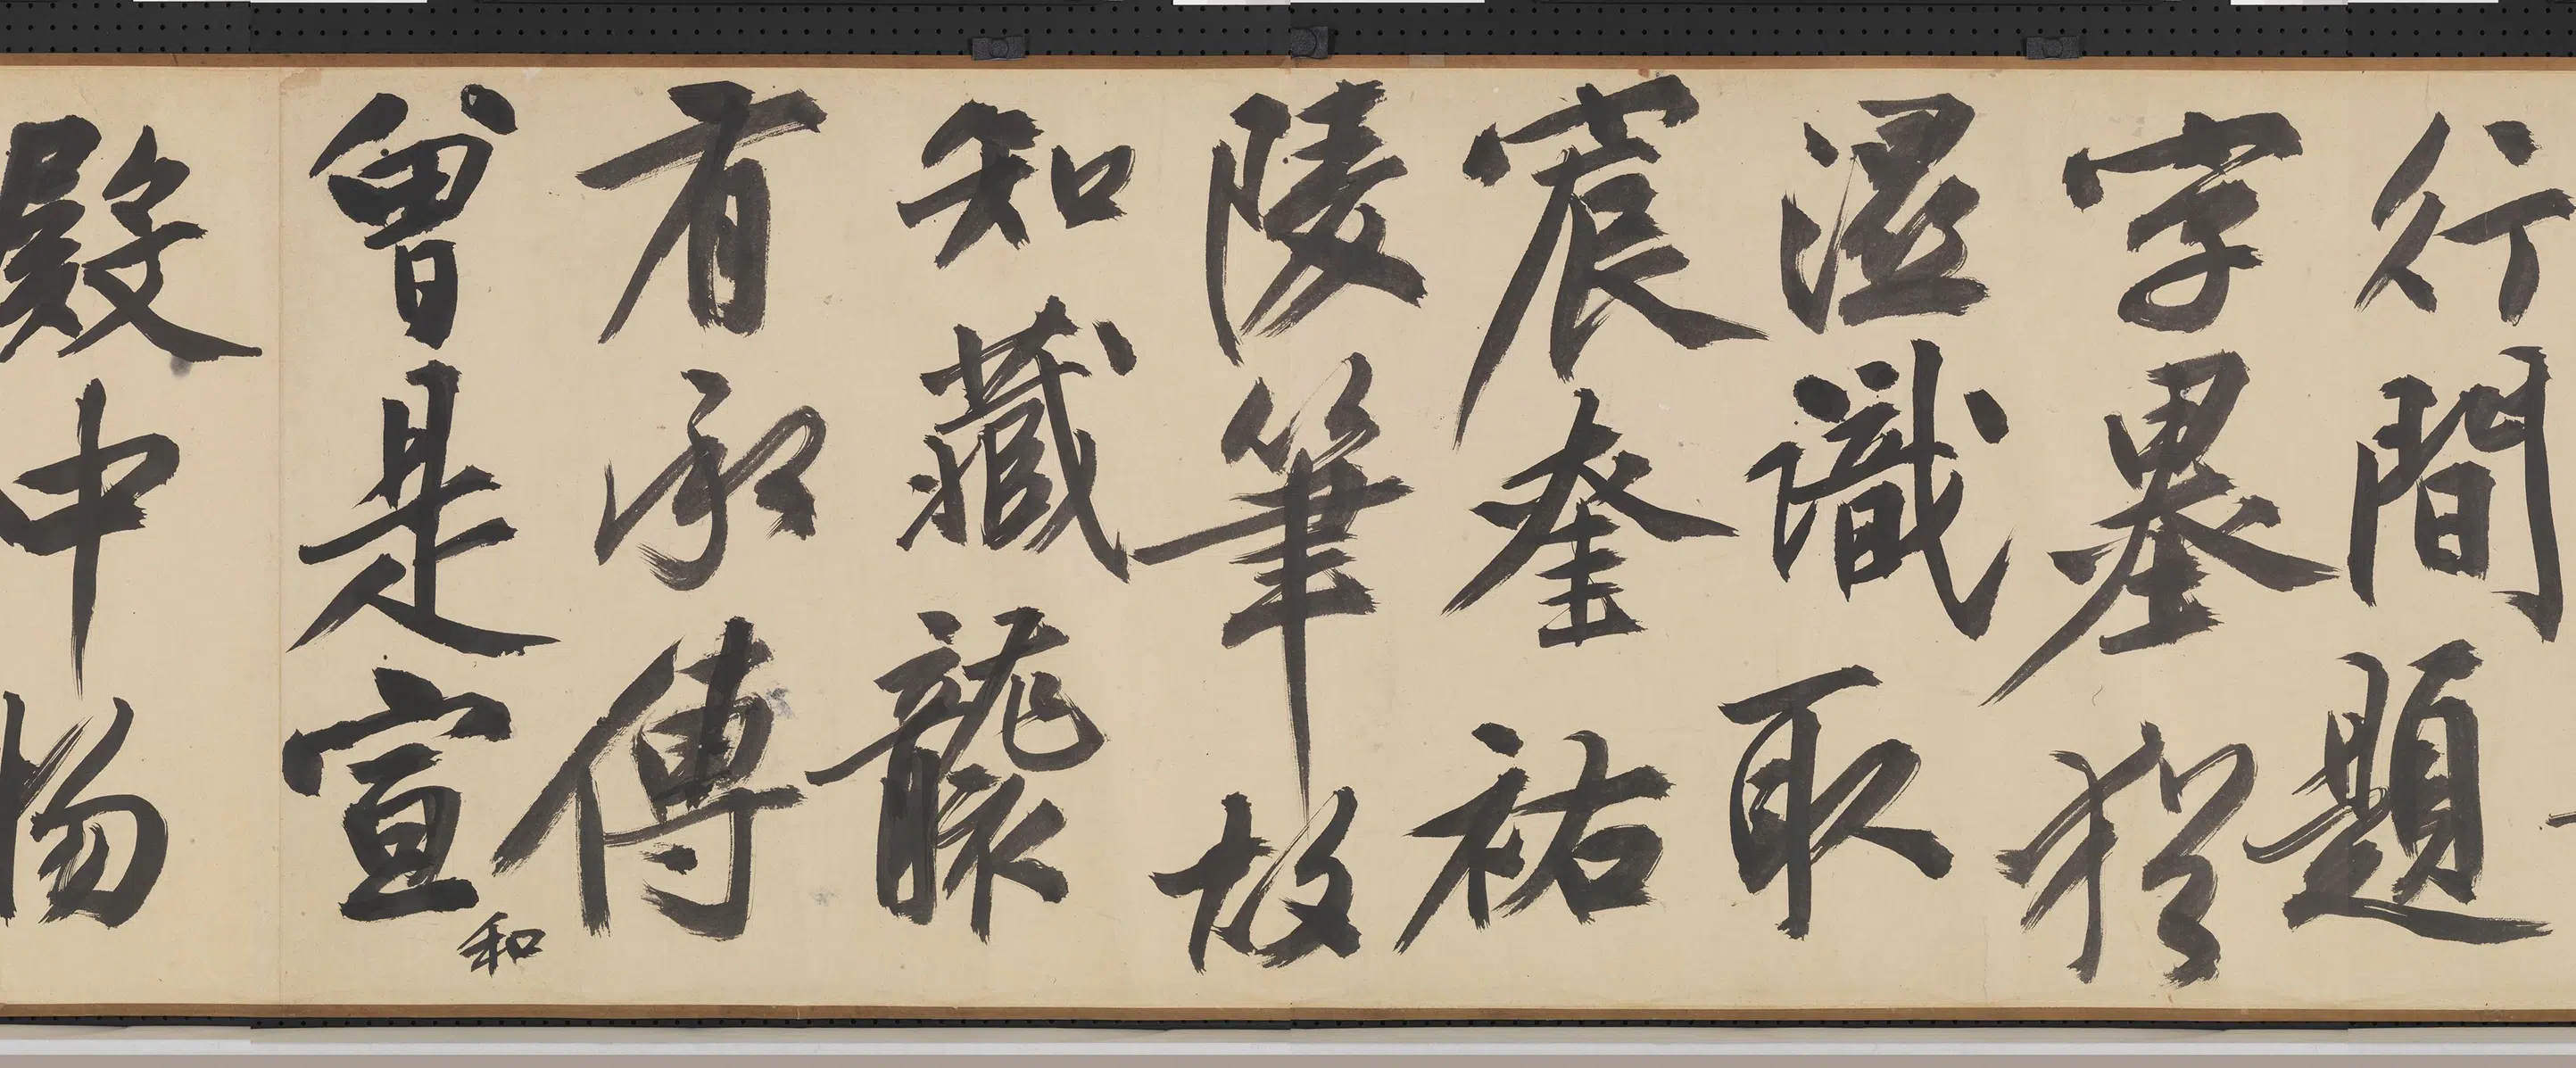 行間題
字墨猶
濕識取
宸奎祐
陵筆故
知藏襲
有承傳
曾是宣和
殿中物